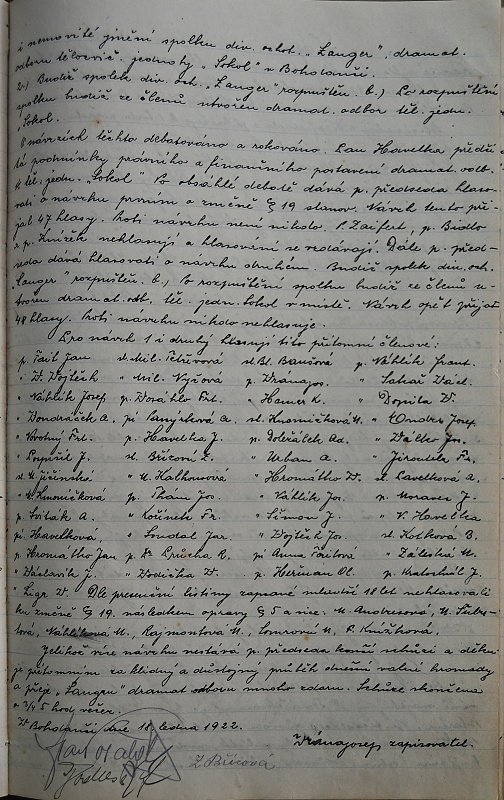 i nemovité jmění spolku div. ochot. „Langer", dramat.
odboru tělocvič. jednoty „Sokol" v Bohdanči.
2.) Budiž spolek div. och. „Langer" rozpuštěn. b.) Po rozpuštění
spolku budiž ze členů utvořen dramat. odbor těl. jedn.
„Sokol.
O návrzích těchto debatováno a rokováno. Pan Havelka předčí-
tá podmínky právního a finančního postavení dramat. odb.
k těl. jedn. „Sokol" Po obsáhlé debatě dává p. předseda hlaso-
vati o návrhu prvním o změně § 19 stanov. Návrh tento při-
jat 47 hlasy. Proti návrhu není nikdo. P. Zaifert, p. Bidlo
a p. Knížek nehlasují a hlasování se vzdávají. Dále p. před-
seda dává hlasovati o návrhu druhém. Budiž spolek div. och.
„Langer" rozpuštěn. b.) Po rozpuštění spolku budiž ze členů u-
tvořen dramat. odb. těl. jedn. Sokol v místě. Návrh opět přijat
48 hlasy. Proti návrhu nikdo nehlasuje.
Pro návrh 1 i druhý hlasují tito přítomní členové:
p. Tait Jan sl. Mil. Petřvová sl. Bl. Baušová p. Váhlík Frant.
" V. Vojtěch " Mil. Vyšová p. Vrána Jos. " Sakař Václ.
" Váhlík Josef p. Dosáhlo Frt. " Hamer K. " Dopita V.
" Vondráček A. pí A. sl. Knorníčková M. " Ondra Josef
" Novotný Frt. p. Havelka J. p. Dobřálek Ad. " Válko Jos.
" Pospíšil J. sl. Břízová Z. " Urban A. " Jiroutek Fr.
sl. M. Jičínská " M. Kalhousová " Hromátko V. sl. Pavelková A.
" V. Knorníčková p. Thám Jos. " Váhlík Jos. p. Moravec J.
p. Sviták A. " Kořínek Fr. " Šimon J. " V. Havelka
pí Havelková, " Soudal Jar. " Vojtěch Jos. sl. Kotková B.
p. Hromátko Jan p. Dr. Průcha R. pí Anna Taitová " Zálešká M.
" Václavík J. " Vodička V. p. Heřman Ol. p. Kratochvíl J.
" Ligr V. Dle presenční listiny zapsané mladší 18 let nehlasovali
ku změně § 19, následkem opravy § 5 a sice: M. Andresová, M. Šubr-
tová, Váhlíková M., Rajmontová M., Somrová M., R. Knížková.
Jelikož více návrhů nestává p. předseda končí schůzi a děku-
je přítomným za klidný a důstojný průběh dnešní valné hromady
a přeje „Langru" dramat. odboru mnoho zdaru. Schůze skončena
o 3/4 5 hod. večer.
V Bohdanči dne 18 ledna 1922.
Vrána Josef zapisovatel.
Z. Břízová